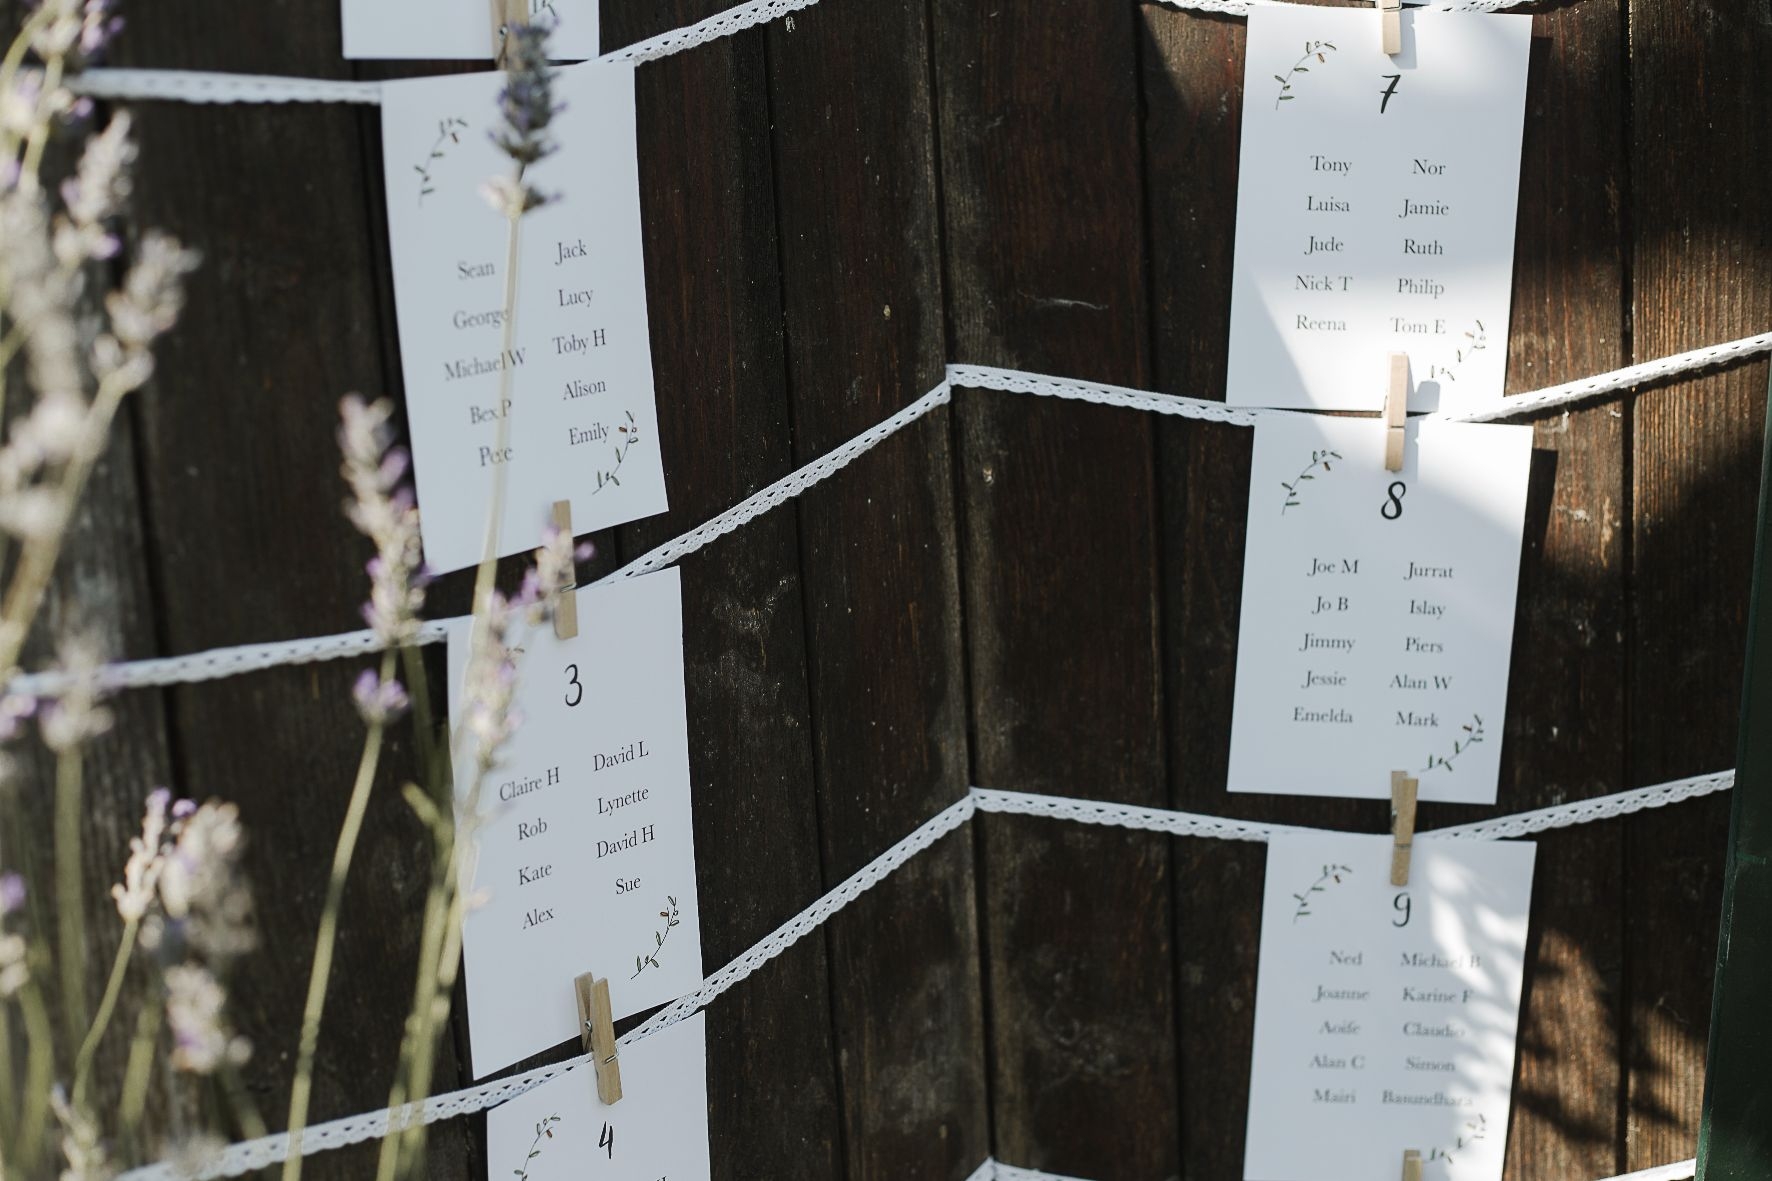 Sean Jack
George Lucy
Michael W Toby H
Bex P Alison
Pete Emily
3
Claire H David L
Rob Lynette
Kate David H
Alex Sue
4
7
Tony Nor
Luisa Jamie
Jude Ruth
Nick T Philip
Reena Tom E
8
Joe M Jurrat
Jo B Islay
Jimmy Piers
Jessie Alan W
Emelda Mark
9
Ned Michael B
Joanne Karine F
Aoife Claudio
Alan C Simon
Mairi Basundhara